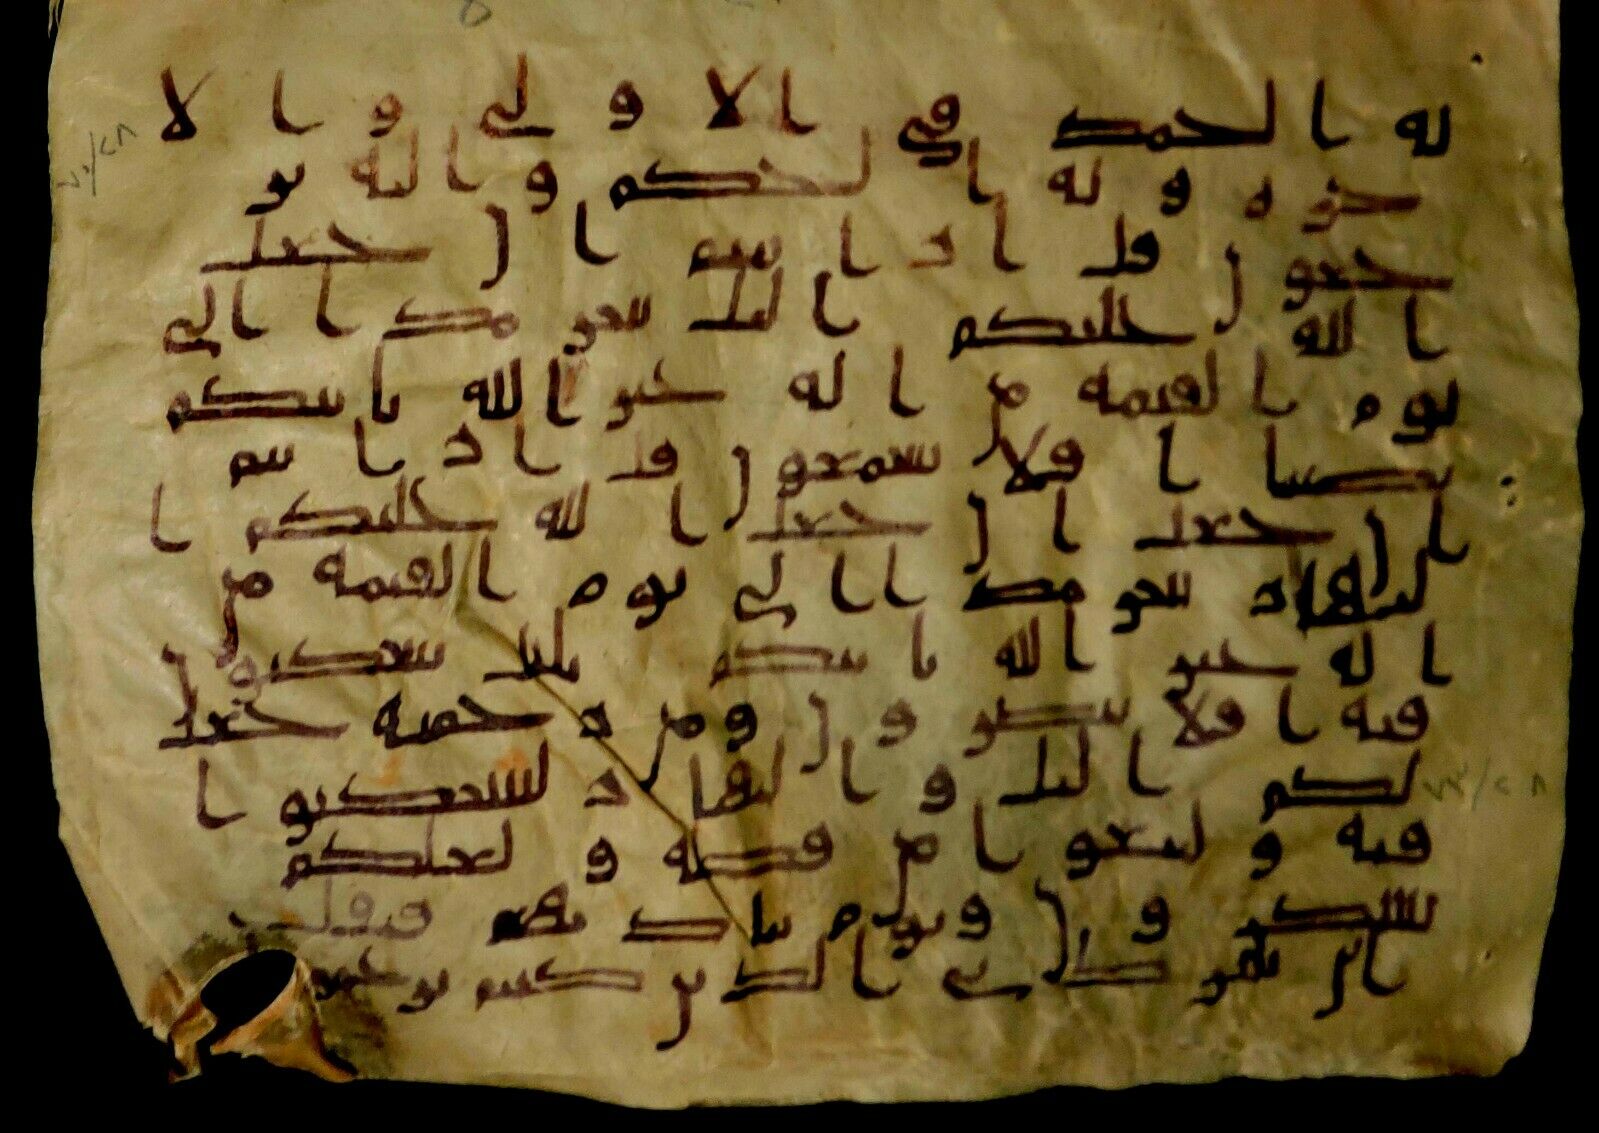 له الحمد في الاولى والا
خره وله الحكم واليه تر
جعون قل ارايتم ان جعل
الله عليكم اليل سرمدا الى
يوم القيمه من اله غير الله ياتيكم
بضيا افلا تسمعون قل ارايتم
ان جعل ان جعل الله عليكم ا
لنهار سرمدا الى يوم القيمه من
اله غير الله ياتيكم بليل تسكنون
فيه افلا تبصرون ومن رحمته جعل
لكم اليل والنهار لتسكنوا
فيه ولتبتغوا من فضله ولعلكم
تشكرون ويوم يناديهم فيقول
اين شركاي الذين كنتم تزعمو